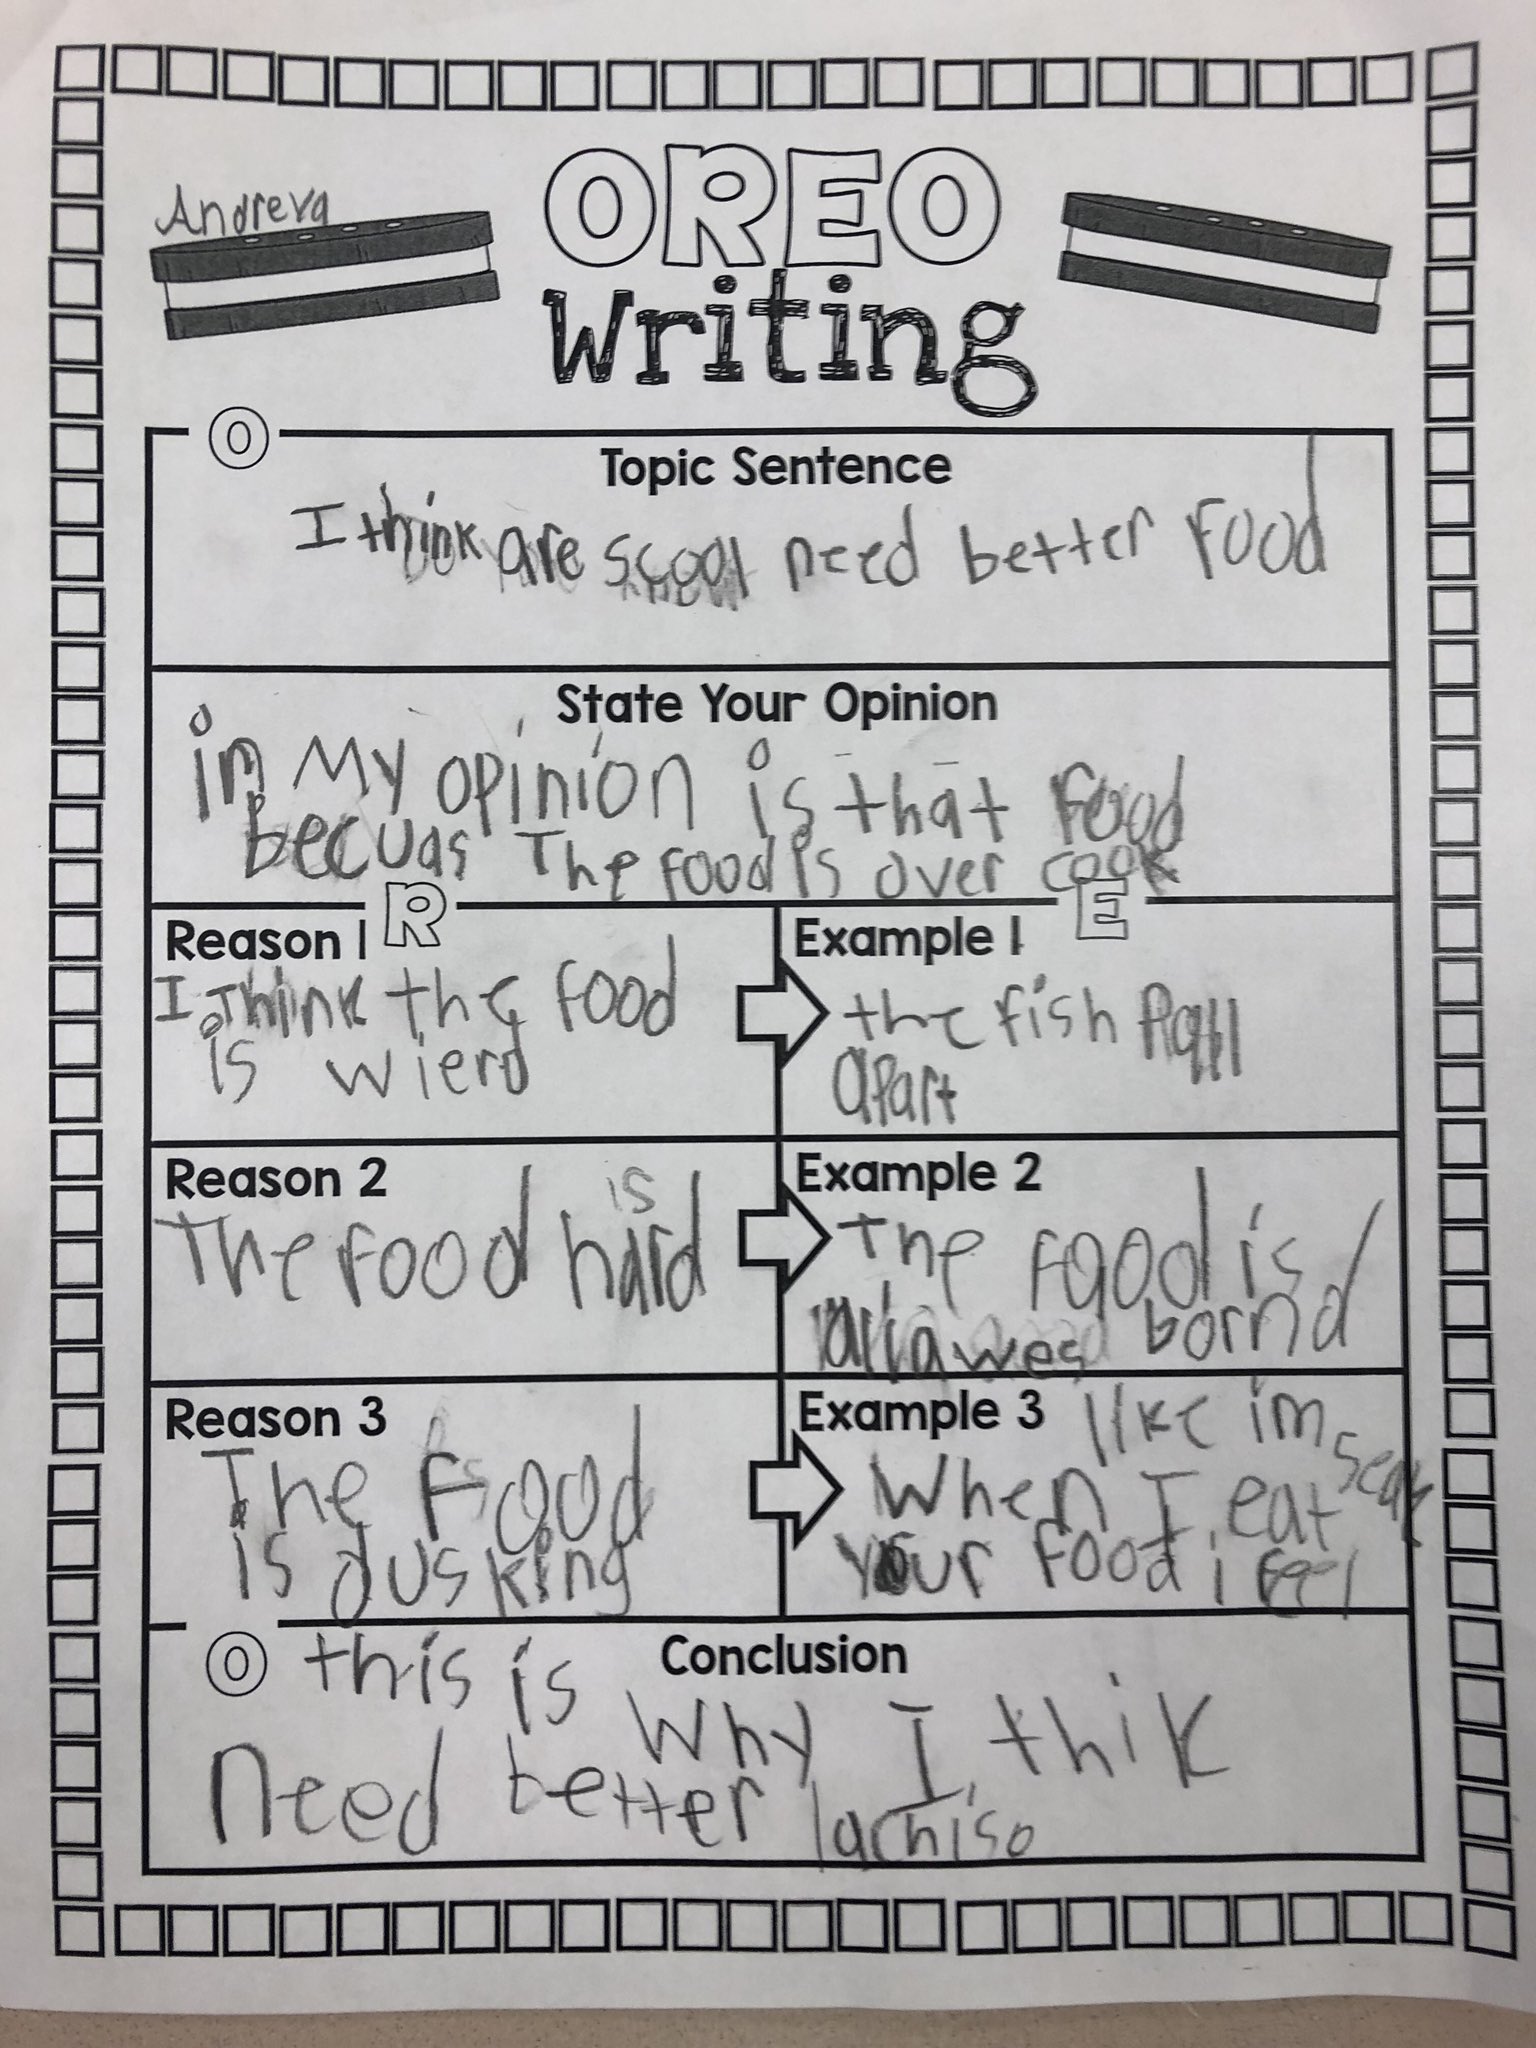 Andreya
OREO
Writing
O
Topic Sentence
I think are scool need better food
State Your Opinion
in My opinion is that food
becuas The food is over cook
R
E
Reason 1
I think the food
is wierd
Example 1
the fish
apart
Reason 2
is
The food hard
Example 2
The food is
bornd
Reason 3
The food
is dusking
Example 3
like im
When I eat
your food i feel
Conclusion
O this is
Why I thik
need better